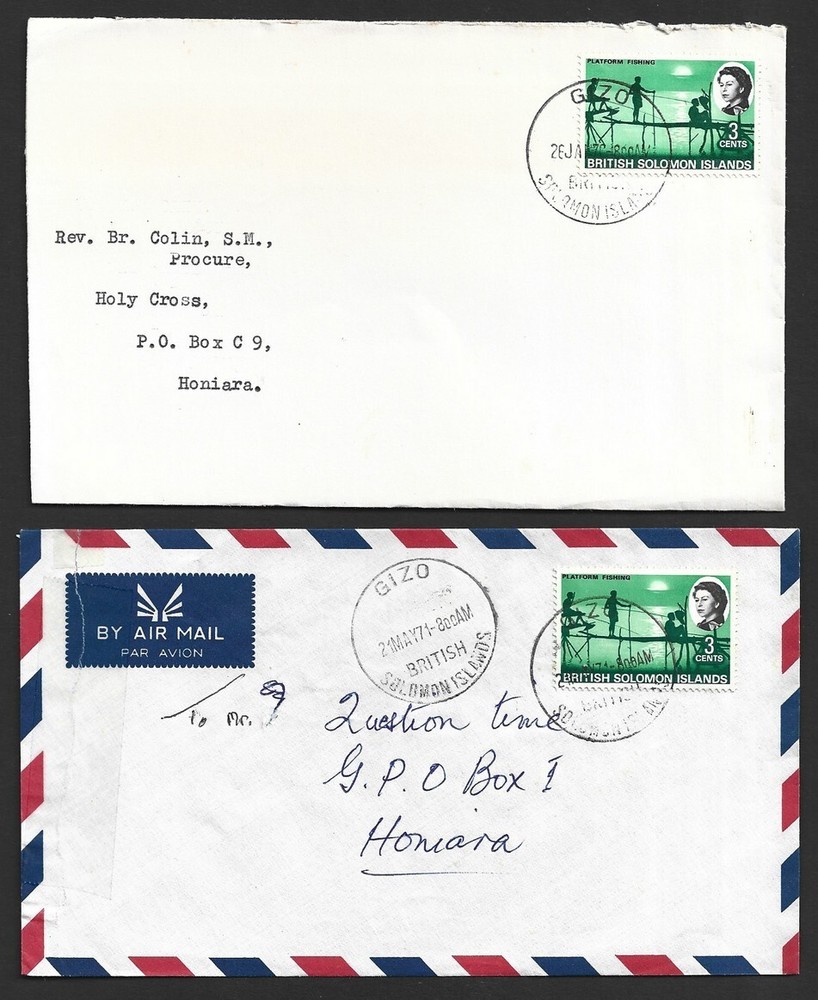 PLATFORM FISHING
3
CENTS
BRITISH SOLOMON ISLANDS
GIZO
SOLOMON ISLAN
Rev. Br. Colin, S.M.,
Procure,
Holy Cross,
P.O. Box C 9,
Honiara.
BY AIR MAIL
PAR AVION
GIZO
21MAY71-800AM
BRITISH
SOLOMON ISLANDS
PLATFORM FISHING
3
CENTS
BRITISH SOLOMON ISLANDS
GIZO
Y71-800AM
BRITIS
SOLOMON ISLAN
To Mr.
Question time
G.P.O Box 1
Honiara